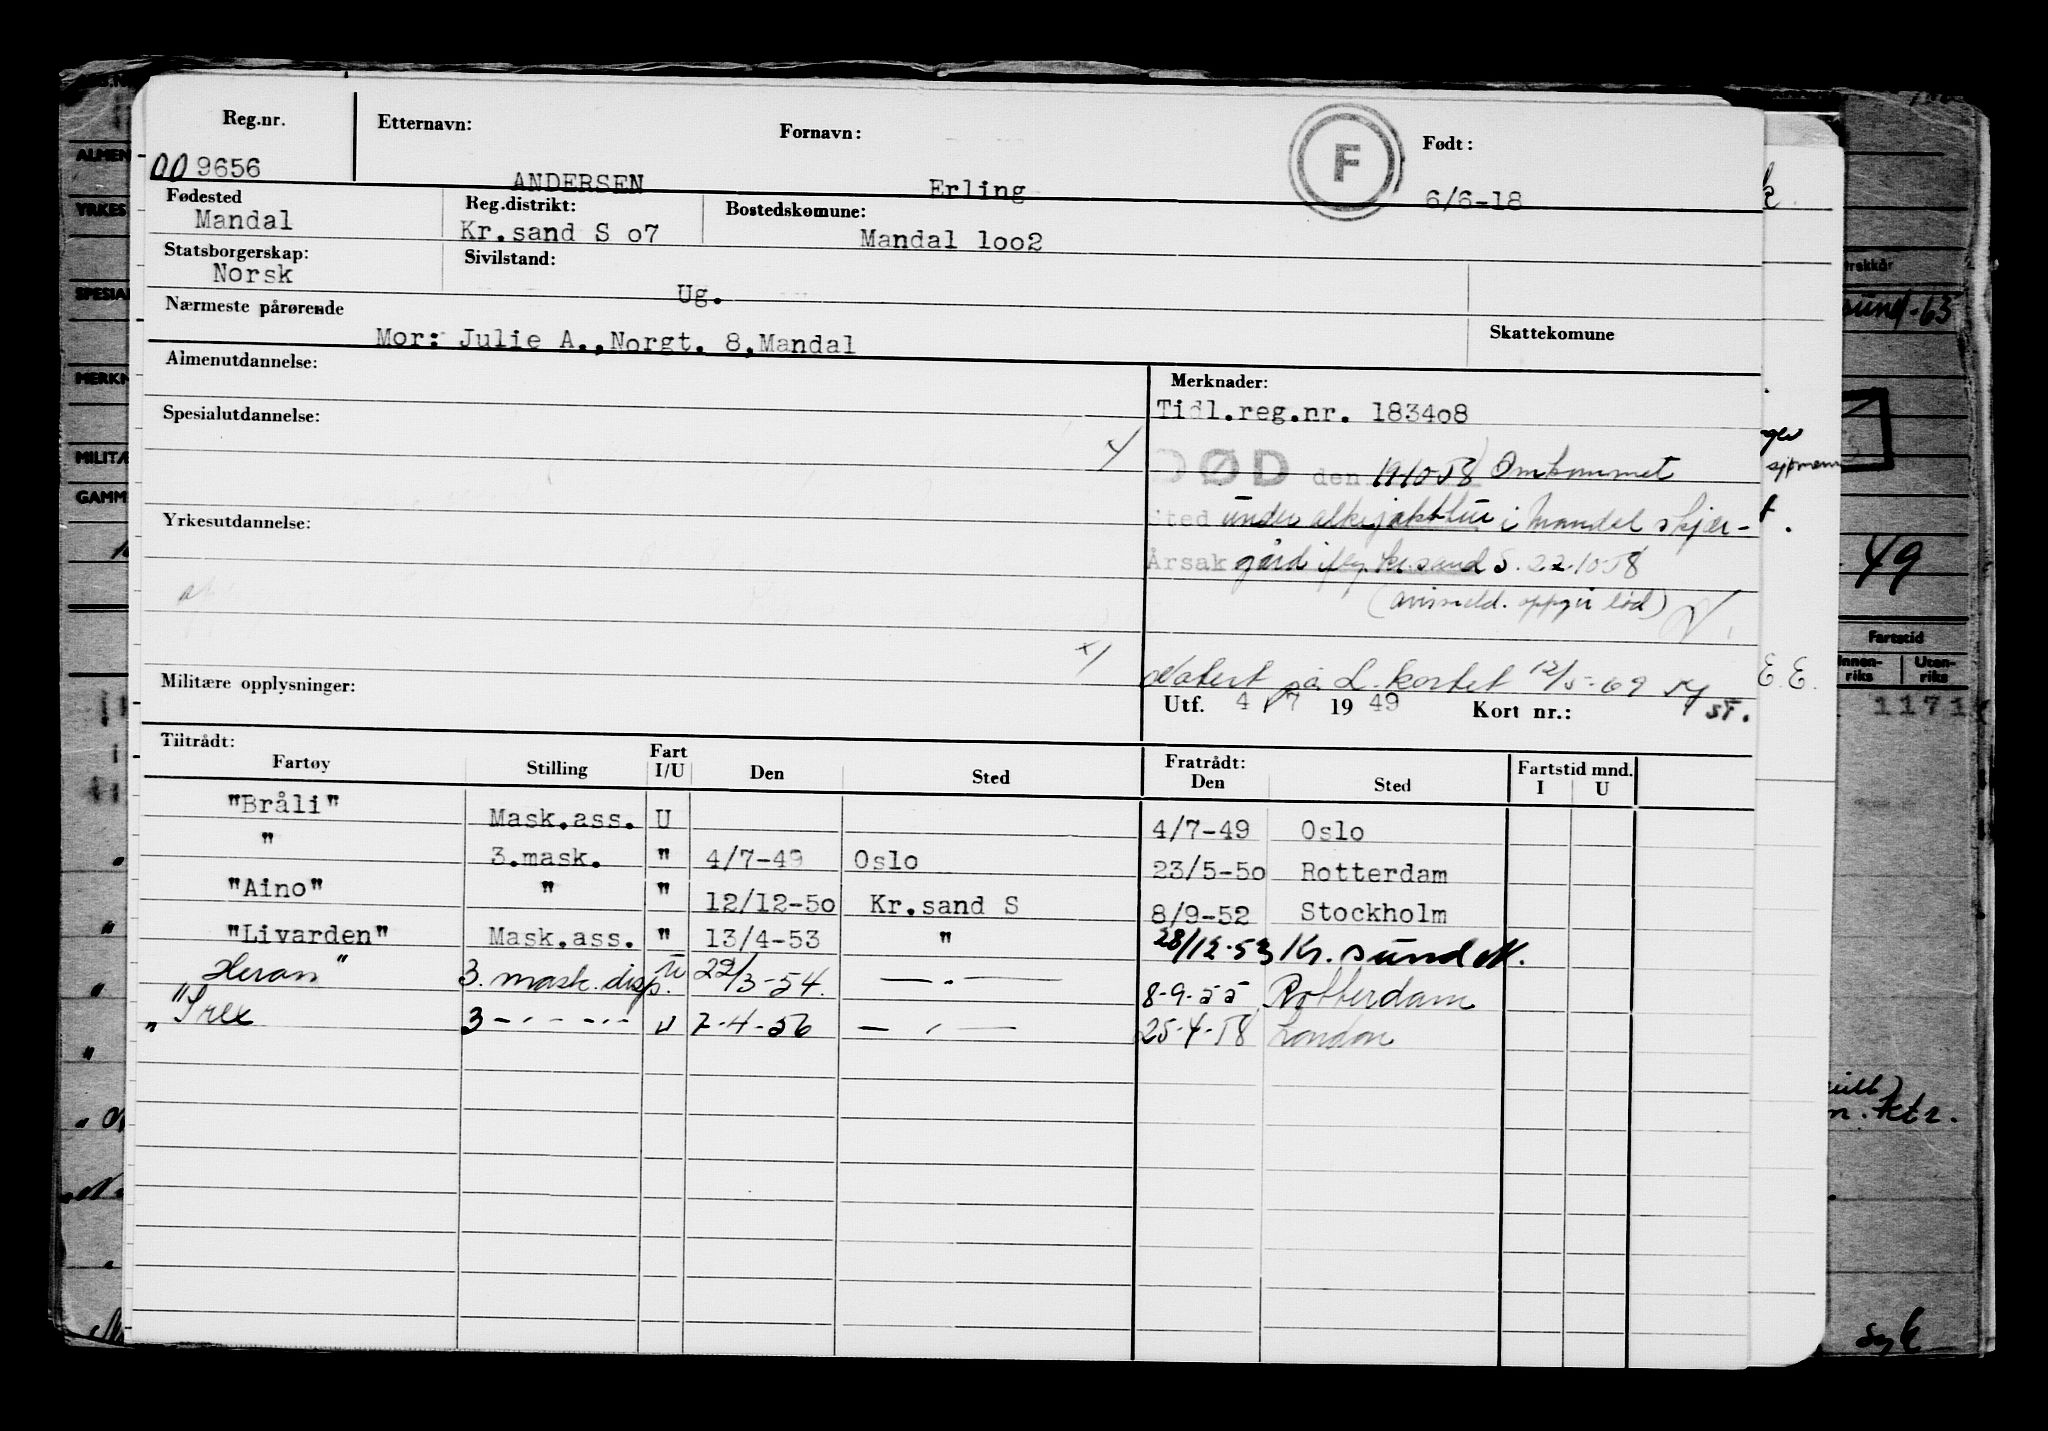 Reg.nr. Etternavn: Fornavn: F Født:
009656 ANDERSEN Erling 6/6-18
Fødested Reg.distrikt: Bostedskomune:
Mandal Kr.sand S o7 Mandal loo2
Statsborgerskap: Sivilstand:
Norsk Ug.
Nærmeste pårørende Skattekomune
Mor: Julie A., Norgt. 8, Mandal
Almenutdannelse: Merknader:
Tidl.reg.nr. 1834o8
Spesialutdannelse:
DØD den 19/10-58 Omkommet
Sted under alkejakttur i Mandal skjær-
Yrkesutdannelse:
Årsak gård iflg. Kr.sand S. 22.10-58
(avismeld. oppgir død)
Notert på L. kortet 12/5-69
Militære opplysninger: Utf. 4/7 1949 Kort nr.: ST.
Tiltrådt: Fratrådt:
Fartøy Stilling Fart I/U Den Sted Den Sted Fartstid mnd. I U
"Bråli" Mask.ass. U 4/7-49 Oslo
" 3.mask. " 4/7-49 Oslo 23/5-5o Rotterdam
"Aino" " " 12/12-5o Kr.sand S 8/9-52 Stockholm
"Livarden" Mask.ass. " 13/4-53 " 28/12-53 Kr.sund N.
Heran" 3. mask. disp. U 22/3-54. — . — 8-9-55 Rotterdam
"Irex 3 - . - . - . - U 7-4-56 — . — 25-4-58 London
ALMEN
YRKES
SPESIAL
MERKN
MILITÆ
GAMM
trekkår
sund-65
sjømenn
49
Fartstid
Innen-riks Uten-riks
E.E.
1171
ktr.
syk